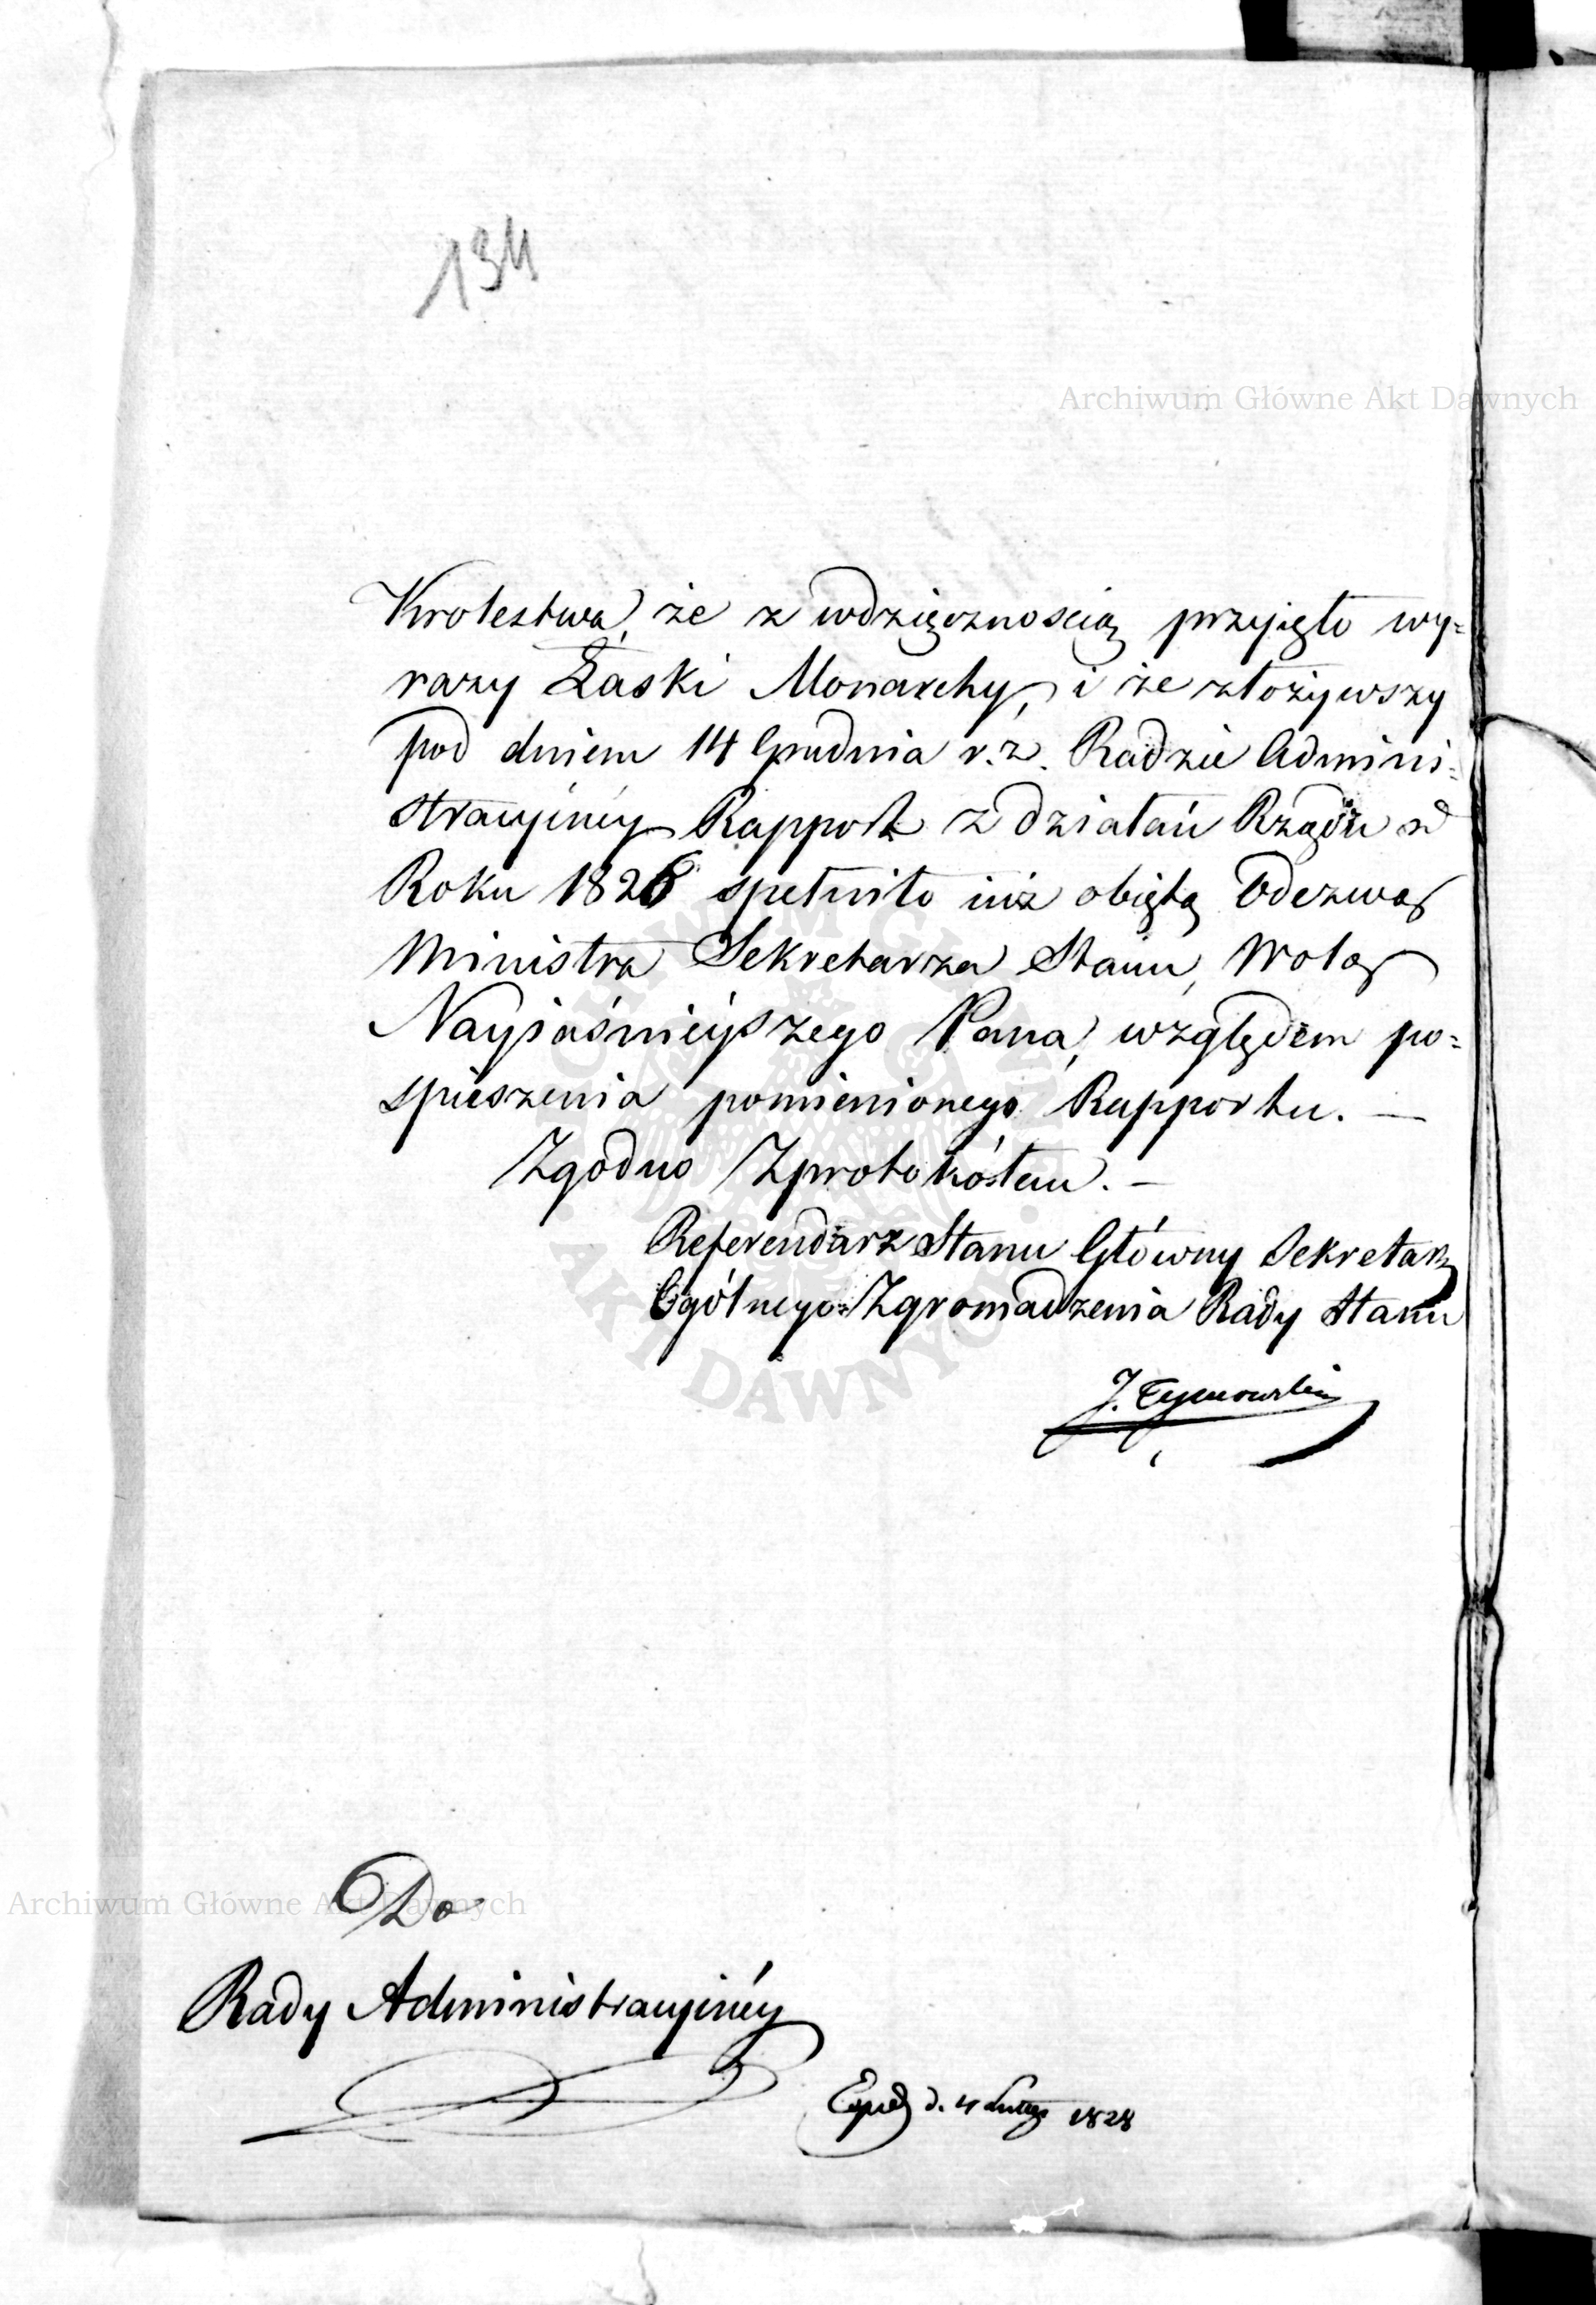 134
Archiwum Główne Akt Dawnych
Krolestwa, że z wdzięcznoscią przyięło wy=
razy Łaski Monarchy, i że złożywszy
pod dniem 14 Grudnia r. z. Radzie Admini=
stracyiney Rapport z działań Rządu z
Roku 1826 spełniło iuż obiętą Odezwą
Ministra Sekretarza Stanu, Wolą
Nayiaśnieyszego Pana, względem po=
spieszenia pomienionego Rapportu. —
Zgodno z protokółem. —
Referendarz Stanu Główny Sekretarz
Ogólnego Zgromadzenia Rady Stanu
J. Tymowski
Archiwum Główne Akt Dawnych
Do
Rady Administracyiney
Exped d. 4 Lutego 1828
ARCHIWUM GŁÓWNE AKT DAWNYCH